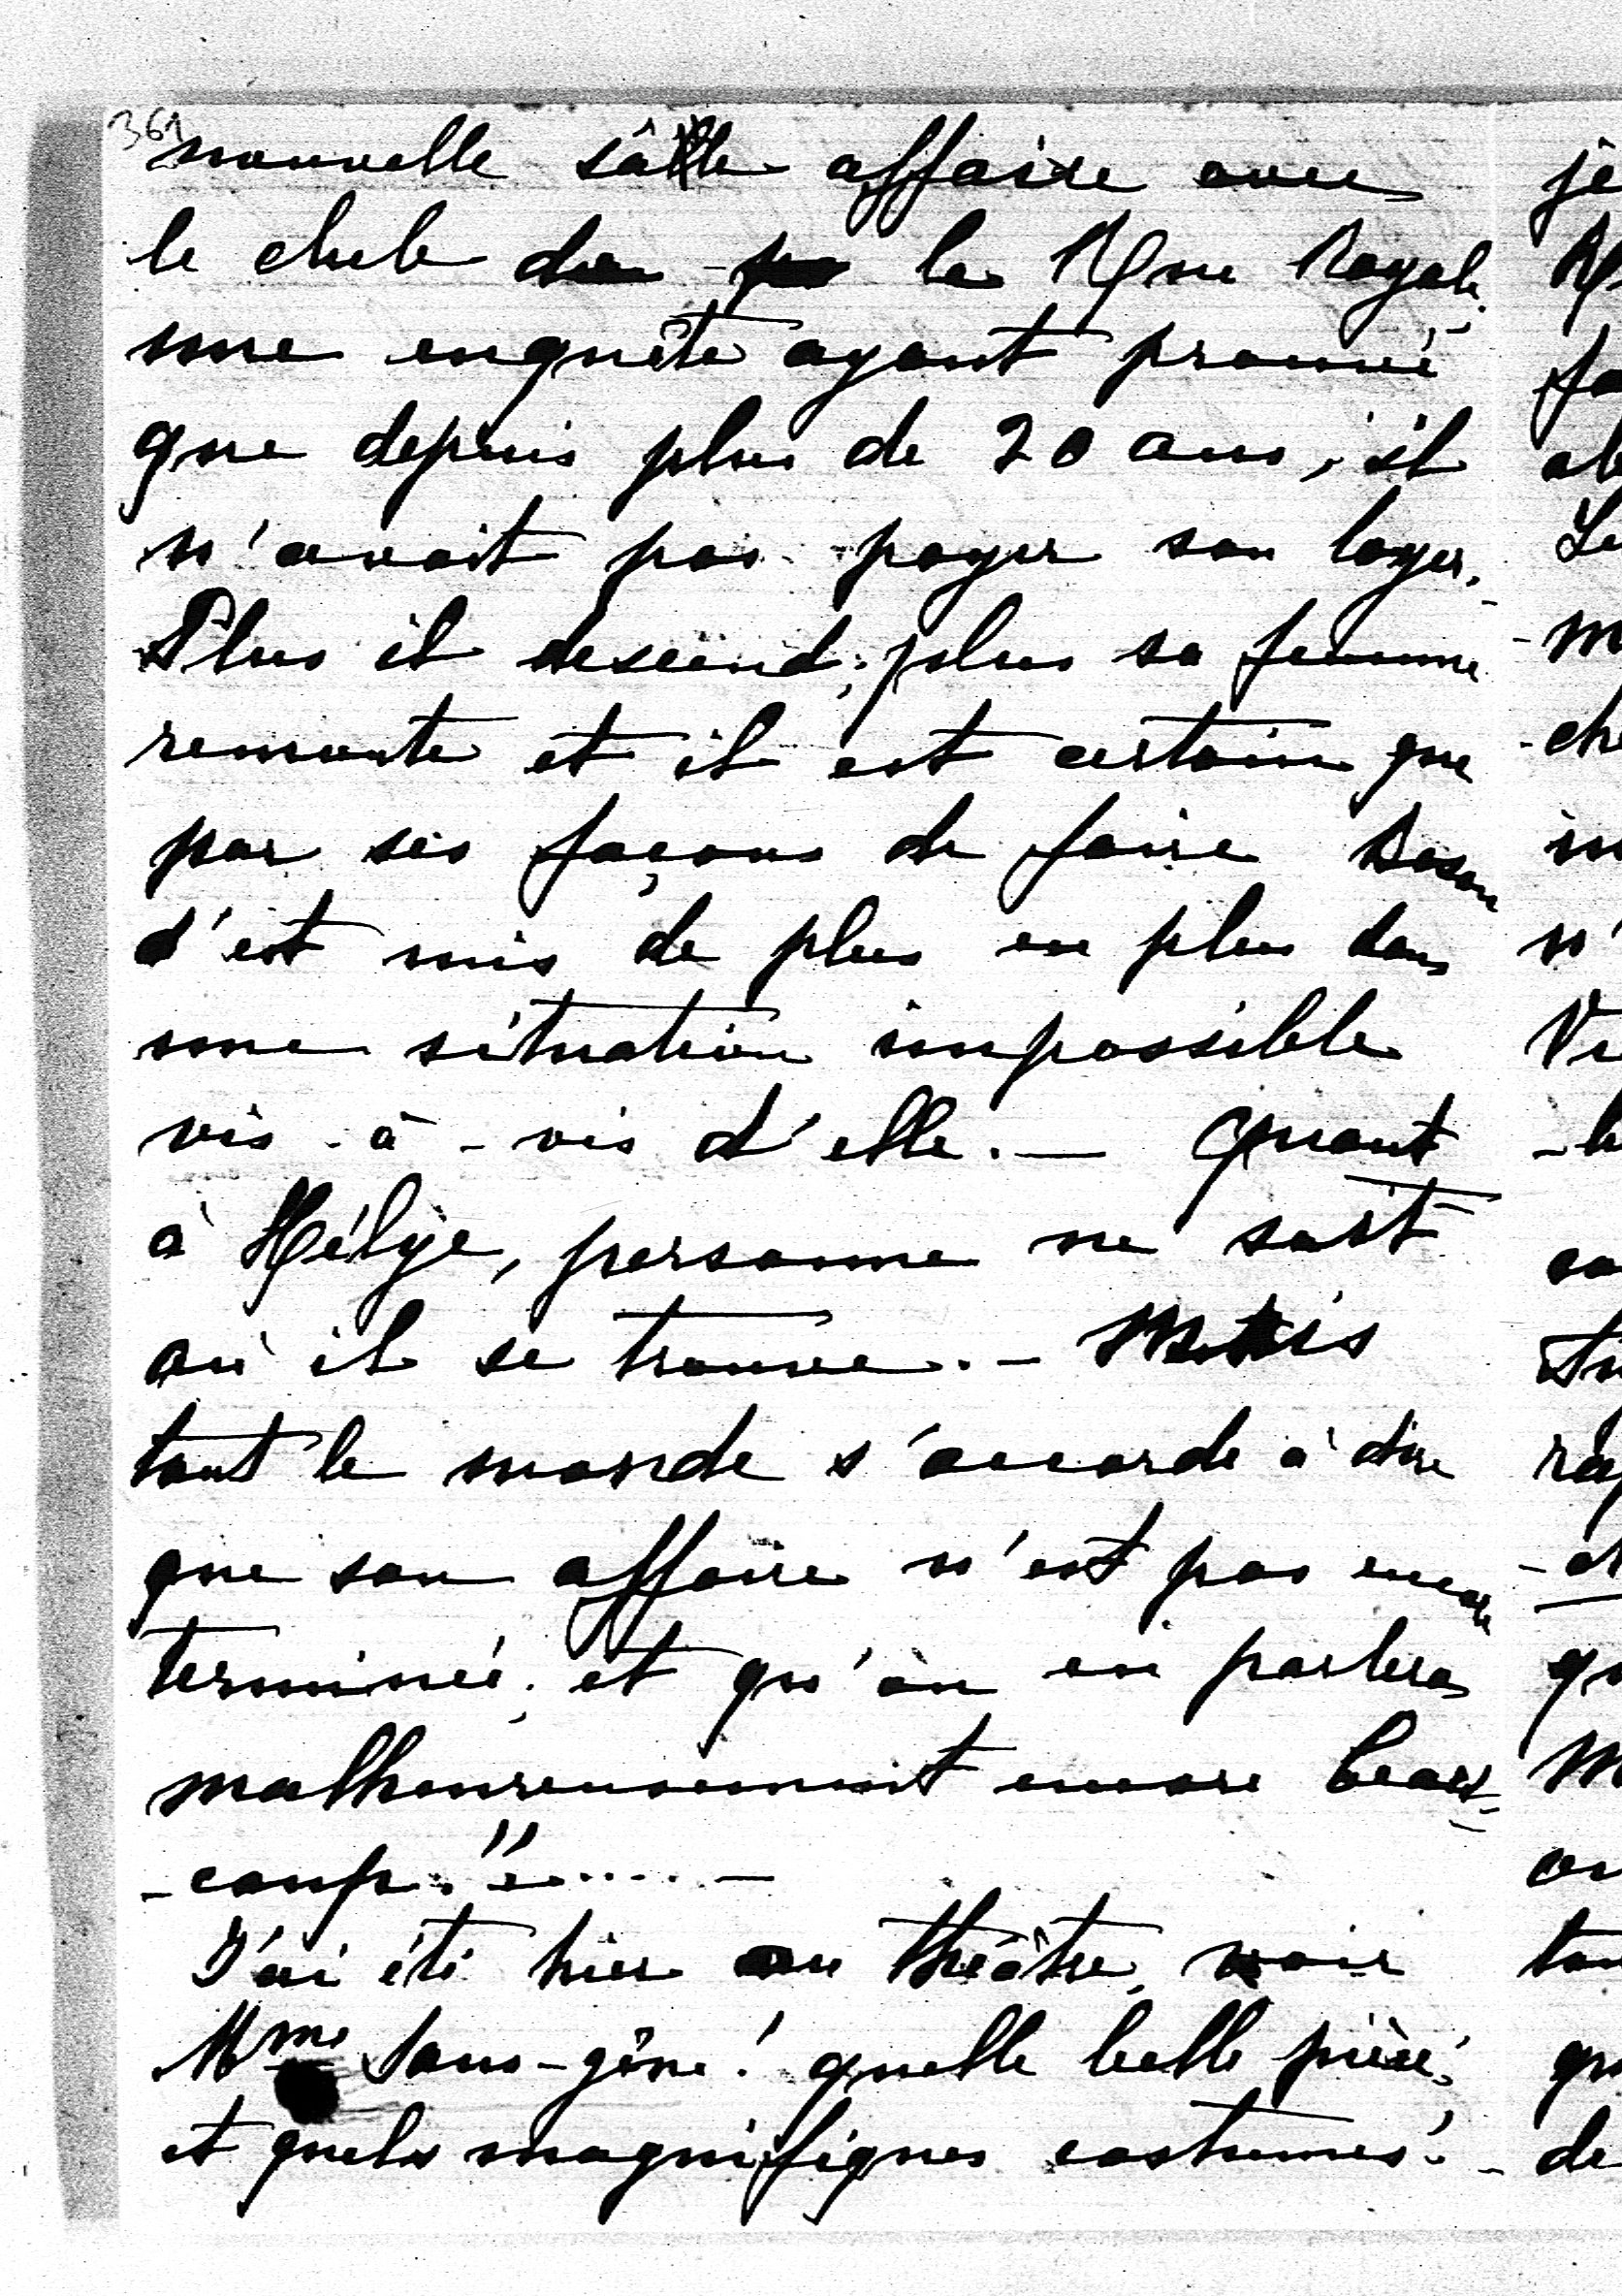 361
nouvelle sâle affaire avec
le club de la Rue Royale;
une enquête ayant prouvé
que depuis plus de 20 ans, il
n'avait pas payer son loyer.-
Plus il descend, plus sa femme
remonte et il est certain que
par ses façons de faire Boson
s'est mis de plus en plus dans
une situation impossible
vis-à-vis d'elle.— Quant
à Hélye, personne ne sait
où il se trouve.- Mais
tout le monde s'accorde à dire
que son affaire n'est pas encore
terminée, et qu'on en parlera
malheureusement encore beau=
-coup."......-
J'ai été hier au théâtre, voir
Mme Sans-gêne! quelle belle pièce,
et quels magnifiques costumes!-